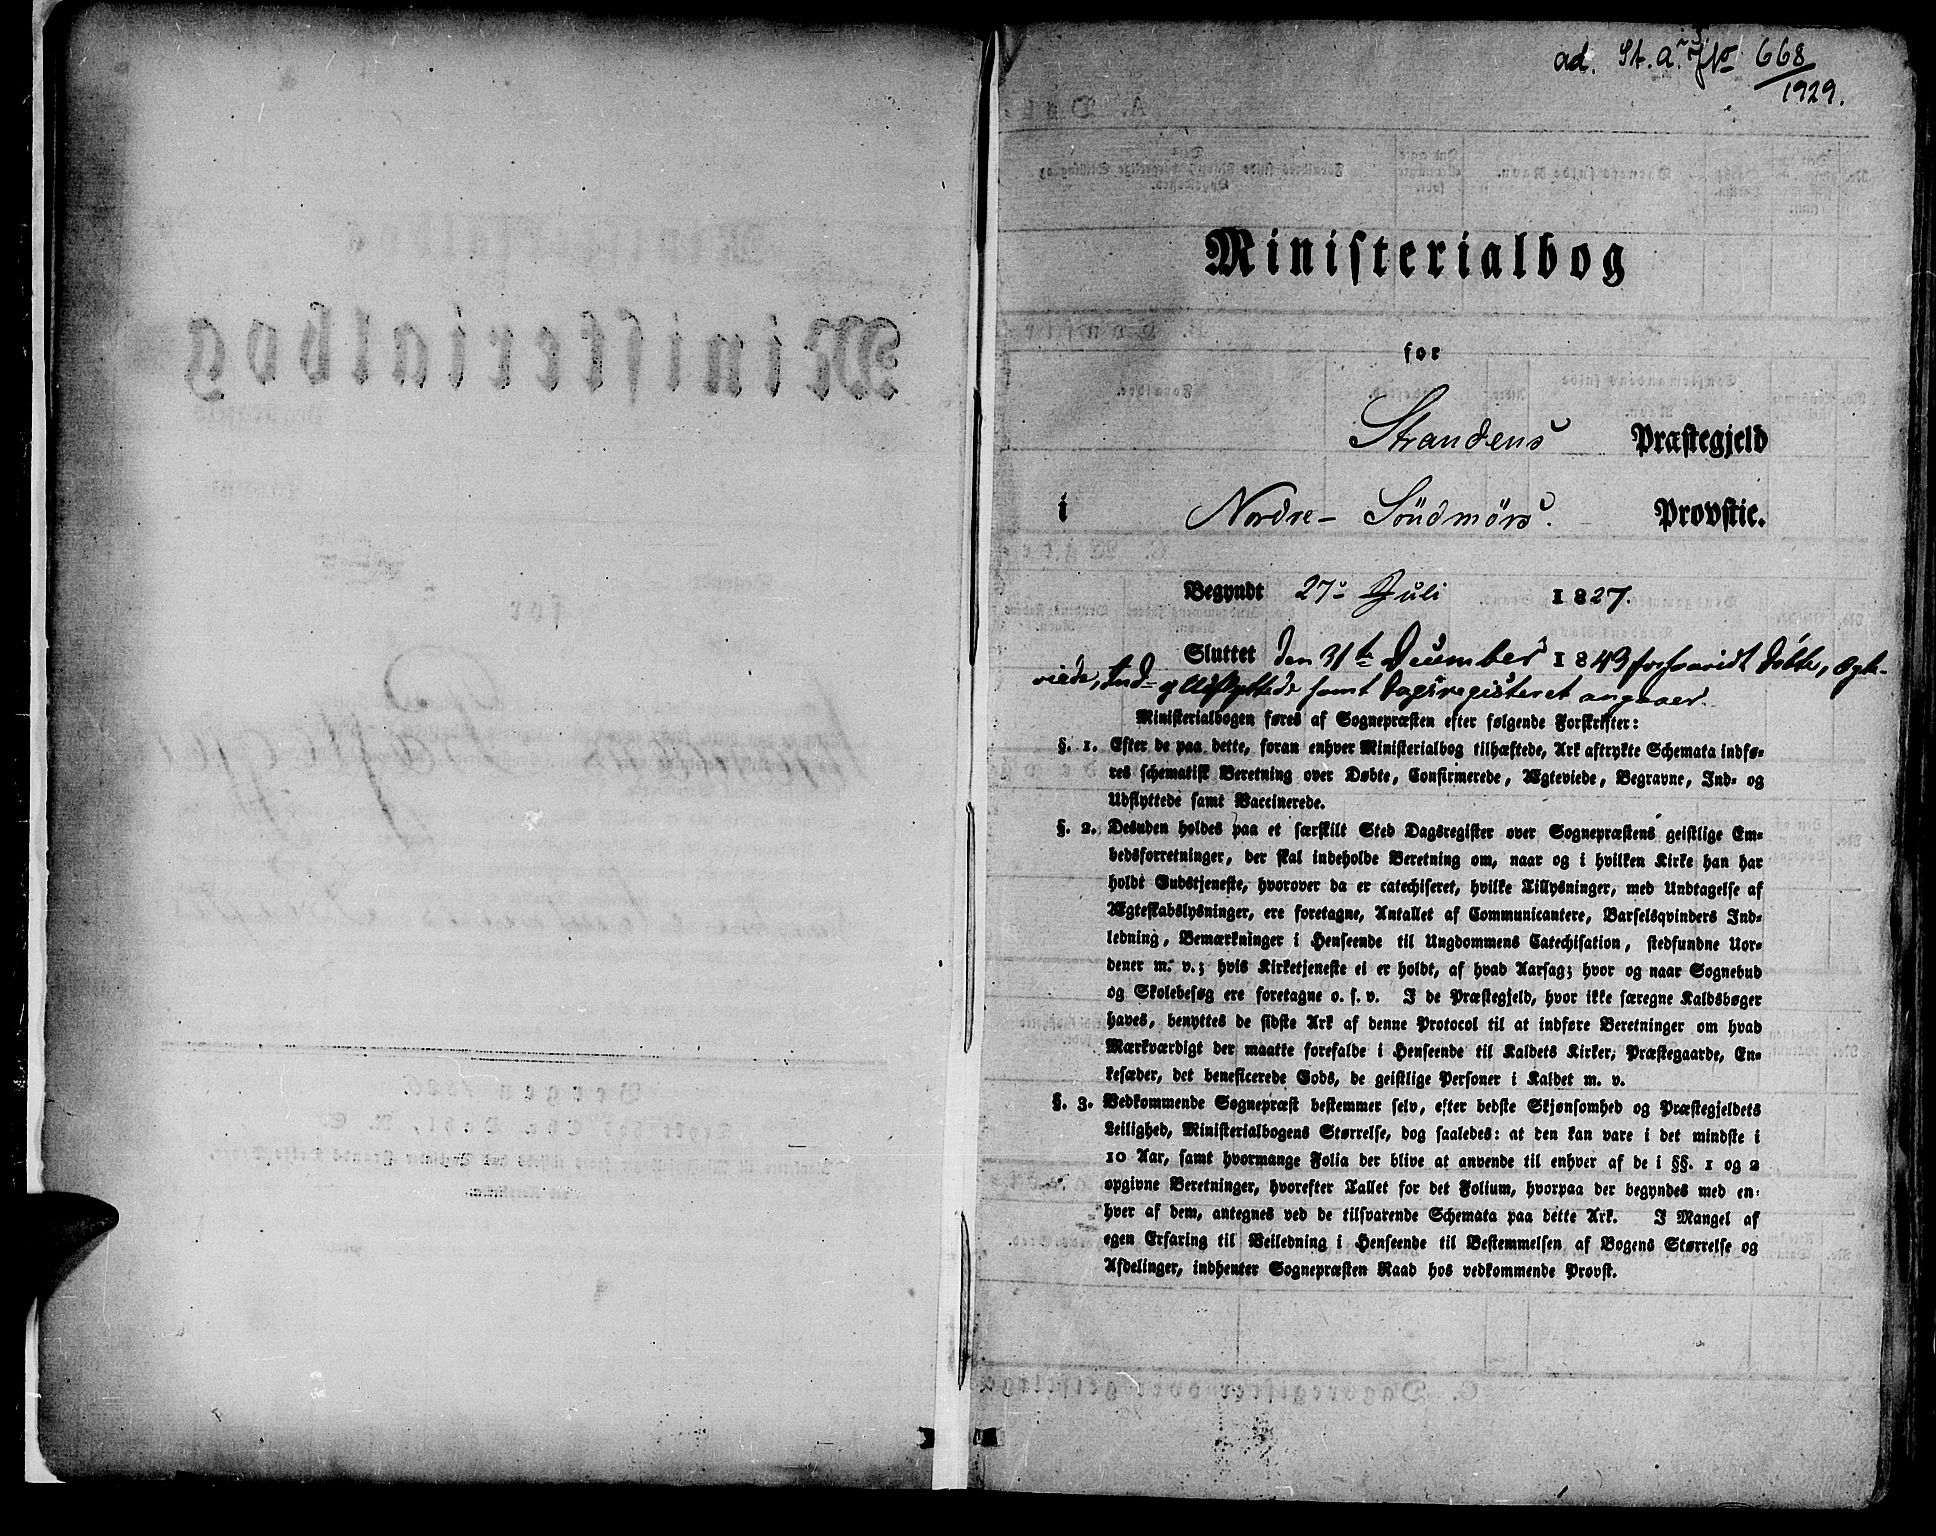 ad. St. a. No 668/1929.
Ministerialbog
for
Strandens Præstegjeld
i Nordre- Söndmörs Provstie.
Begyndt 27de Juli 1827.
Sluttet den 31te December 1843 forsaavidt Døbte, Ægte-
viede, Ind- og Udflyttede samt Dagsregisteret angaaer.
Ministerialbogen føres af Sognepræsten efter følgende Forskrifter:
§. 1. Efter de paa dette, foran enhver Ministerialbog tilhæftede, Ark aftrykte Schemata indfø-
res schematisk Beretning over Døbte, Confirmerede, Ægteviede, Begravne, Ind- og
Udflyttede samt Vaccinerede.
§. 2. Desuden holdes paa et særskilt Sted Dagsregister over Sognepræstens geistlige Em-
bedsforretninger, der skal indeholde Beretning om, naar og i hvilken Kirke han har
holdt Gudstjeneste, hvorover da er catechiseret, hvilke Tillysninger, med Undtagelse af
Ægteskabslysninger, ere foretagne, Antallet af Communicantere, Barselqvinders Ind-
ledning, Bemærkninger i Henseende til Ungdommens Catechisation, stedfundne Uor-
dener m. v.; hvis Kirketjeneste ei er holdt, af hvad Aarsag; hvor og naar Sognebud
og Skolebesøg ere foretagne o. s. v. I de Præstegjeld, hvor ikke særegne Kaldsbøger
haves, benyttes de sidste Ark af denne Protocol til at indføre Beretninger om hvad
Mærkværdigt der maatte forefalde i Henseende til Kaldets Kirker, Præstegaarde, En-
kesæder, det beneficerede Gods, de geistlige Personer i Kaldet m. v.
§. 3. Vedkommende Sognepræst bestemmer selv, efter bedste Skjønsomhed og Præstegjeldets
Leilighed, Ministerialbogens Størrelse, dog saaledes: at den kan vare i det mindste i
10 Aar, samt hvormange Folia der blive at anvende til enhver af de i §§. 1 og 2
opgivne Beretninger, hvorefter Tallet for det Folium, hvorpaa der begyndes med en-
hver af dem, antegnes ved de tilsvarende Schemata paa dette Ark. I Mangel af
egen Erfaring til Veiledning i Henseende til Bestemmelsen af Bogens Størrelse og
Afdelinger, indhenter Sognepræsten Raad hos vedkommende Provst.